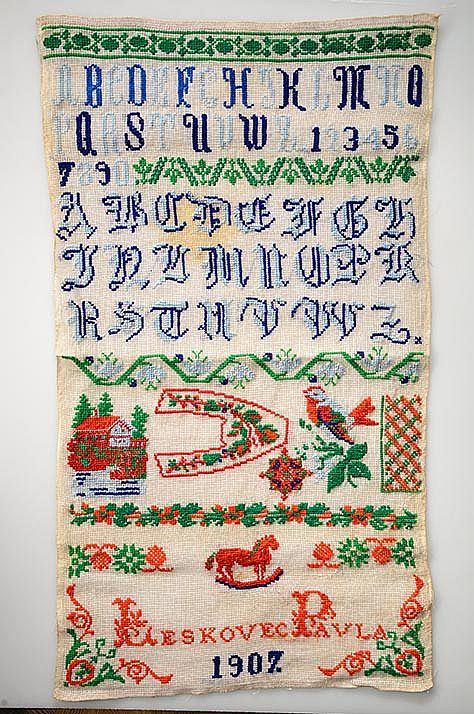 A B C D E F G H J K L M N O
P Q R S T U V W Z 1 2 3 4 5 6
7 8 9 0
A B C D E F G H
J K L M N O P
R S T U V W Z.
LESKOVEC PAVLA
1907